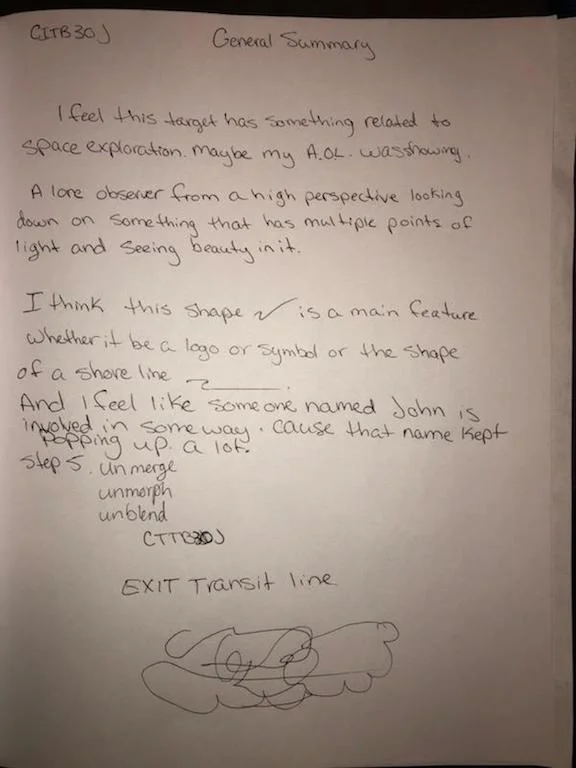 CITB30J
General Summary
I feel this target has something related to
space exploration. maybe my A.OL. was showing.
A lone observer from a high perspective looking
down on something that has multiple points of
light and seeing beauty in it.
I think this shape is a main feature
whether it be a logo or symbol or the shape
of a shore line
And I feel like someone named John is
involved in some way. cause that name kept
popping up a lot.
Step 5. unmerge
unmorph
unblend
CTTB30J
EXIT Transit line